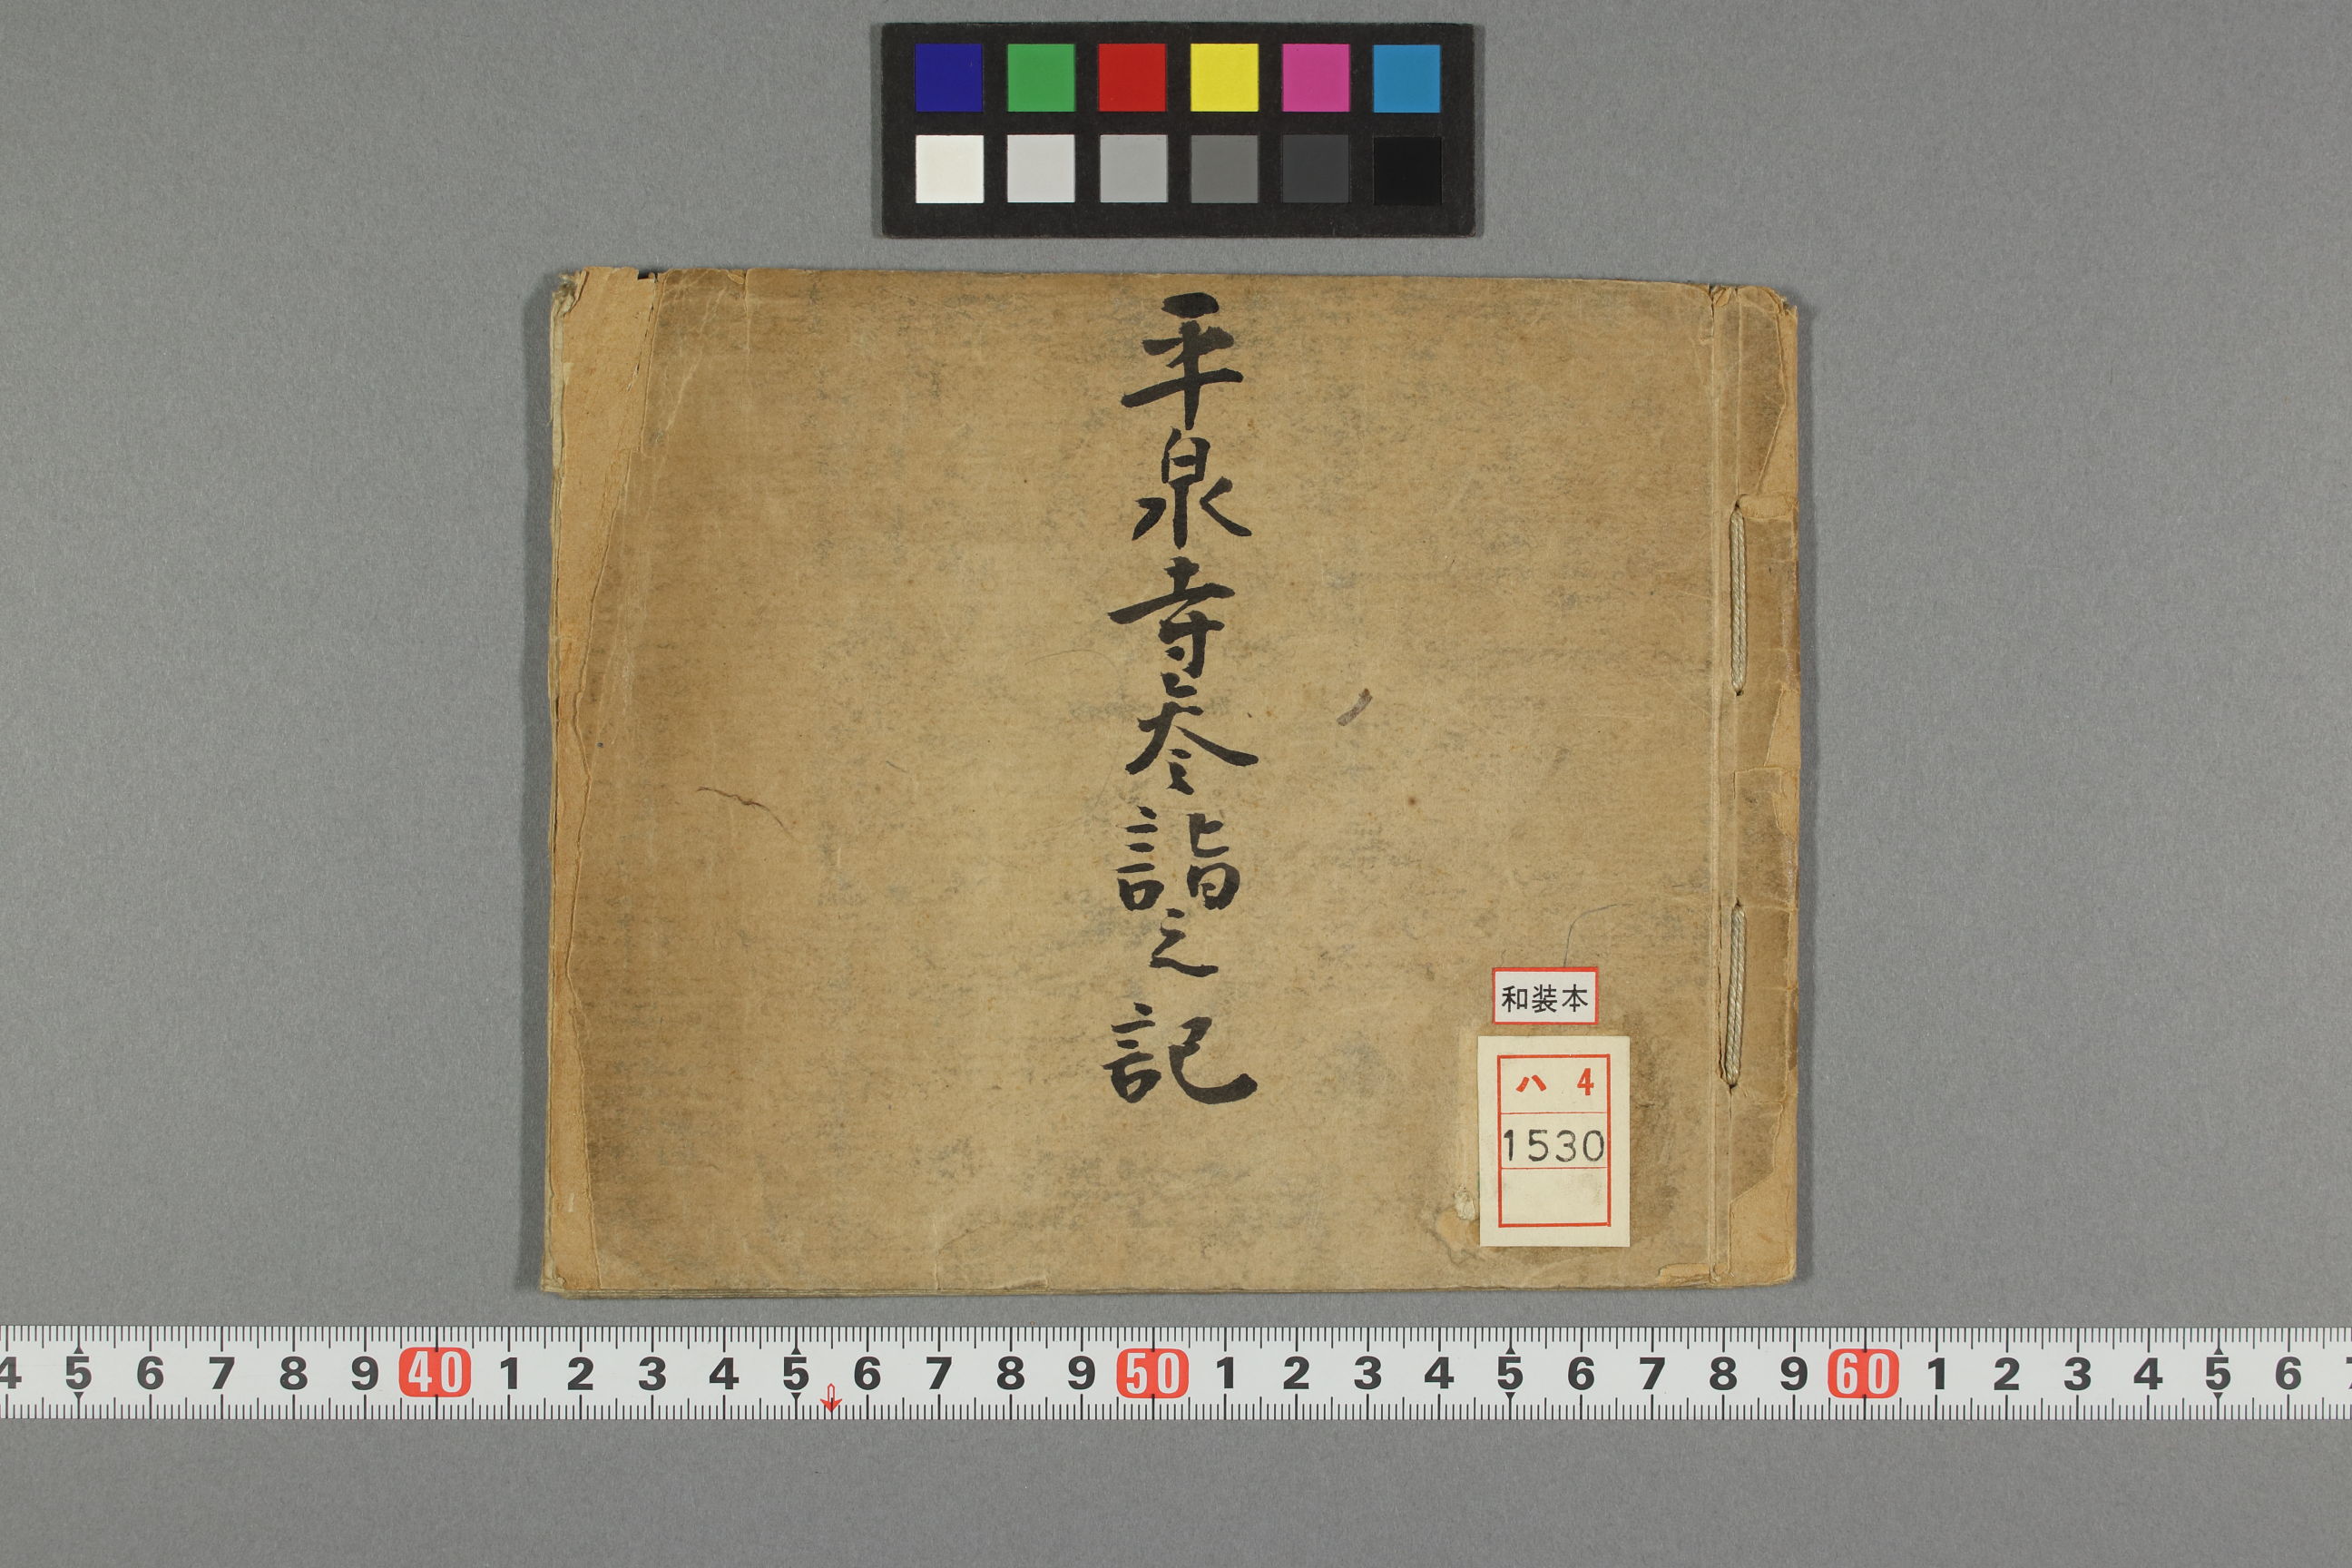 平泉寺参詣之記
和装本
ハ 4
1530
4 5 6 7 8 9 40 1 2 3 4 5 6 7 8 9 50 1 2 3 4 5 6 7 8 9 60 1 2 3 4 5 6